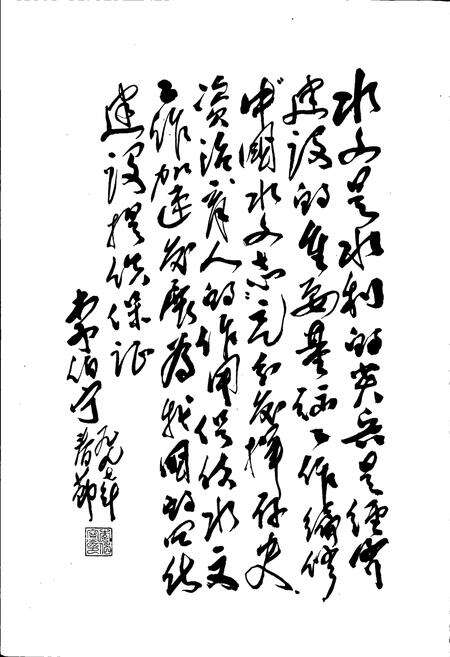 水文是水利的尖兵是经济
建设的重要基础工作编修
中国水文志充分发挥存史
资治育人的作用促使水文
工作加速发展为我国的四化
建设提供保证
李伯宁
一九九七年
春节